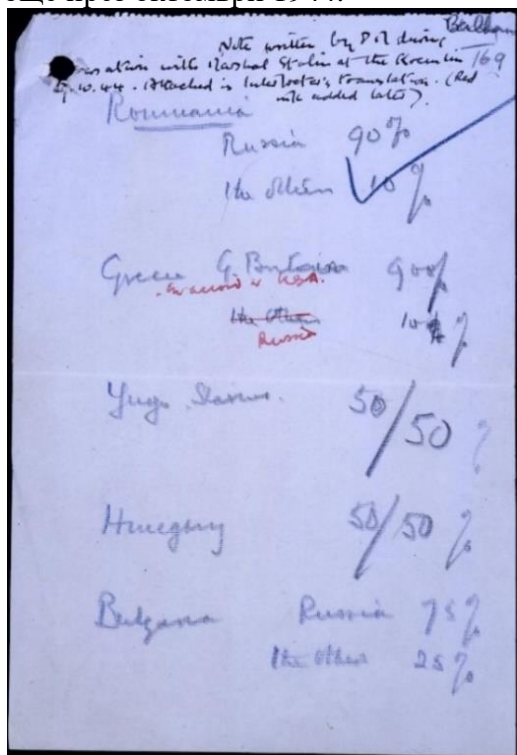 още през октомври 1944.
Note written by P.M during
conversation with Marshal Stalin at the Kremlin 169
9.10.44. Attached is Interpreter's translation. (Red
ink added later).
Roumania
Russia 90%
The others 10%
Greece G. Britain 90%
in accord w USA.
the others 10%
Russia
Yugo Slavia. 50/50 %
Hungary 50/50 %
Bulgaria Russia 75%
the others 25%